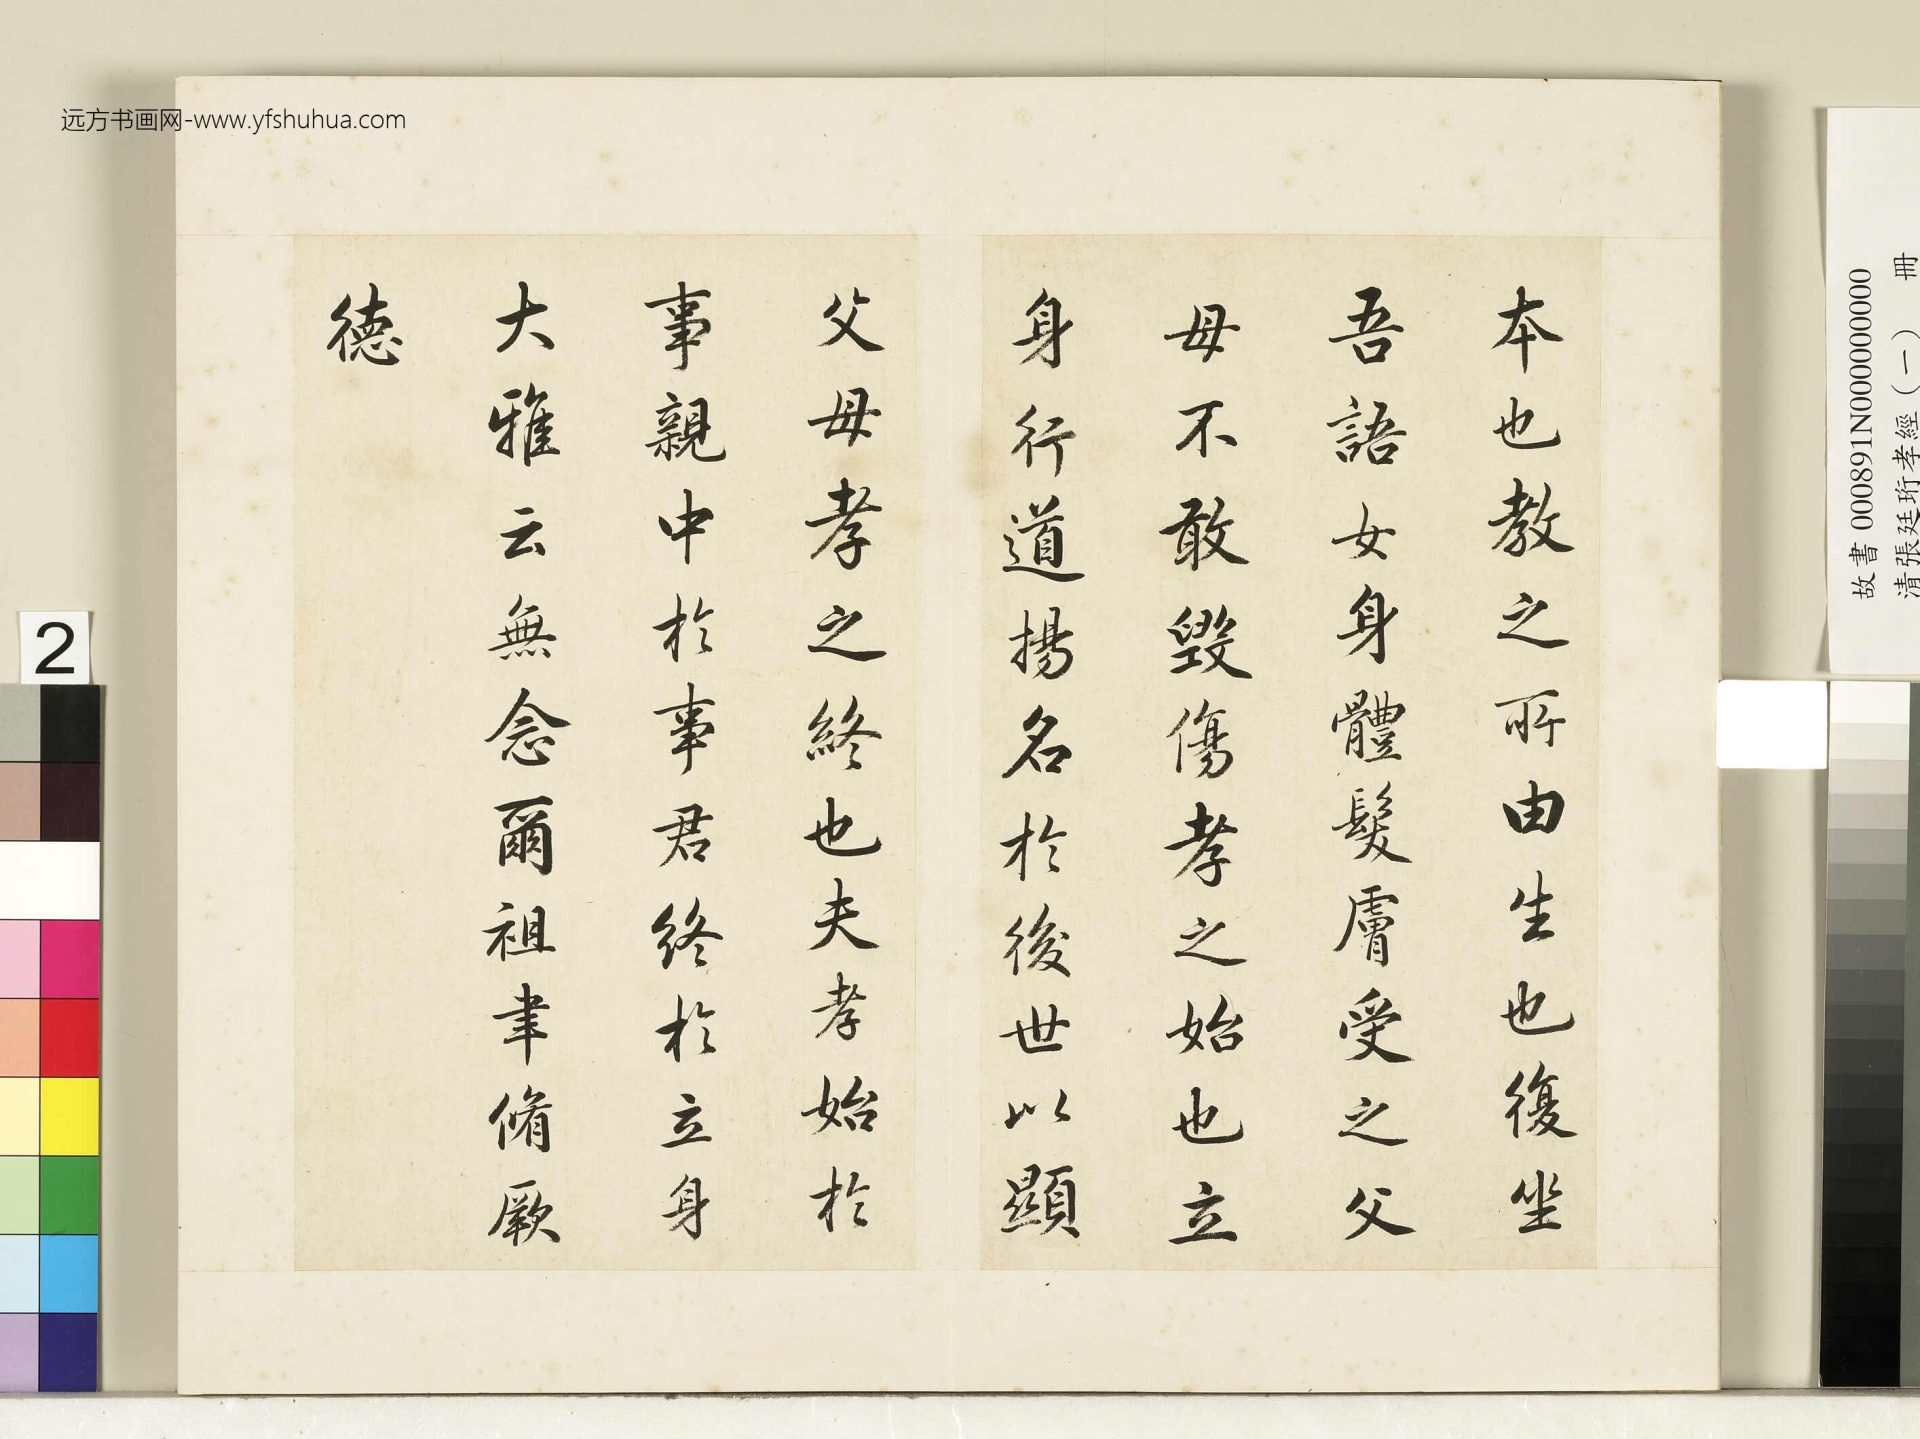 远方书画网-www.yfshuhua.com
本也教之所由生也復坐
吾語女身體髮膚受之父
母不敢毀傷孝之始也立
身行道揚名於後世以顯
父母孝之終也夫孝始於
事親中於事君終於立身
大雅云無念爾祖聿脩厥
德
故書 000891N000000000
清張廷珩孝經(一) 冊
2